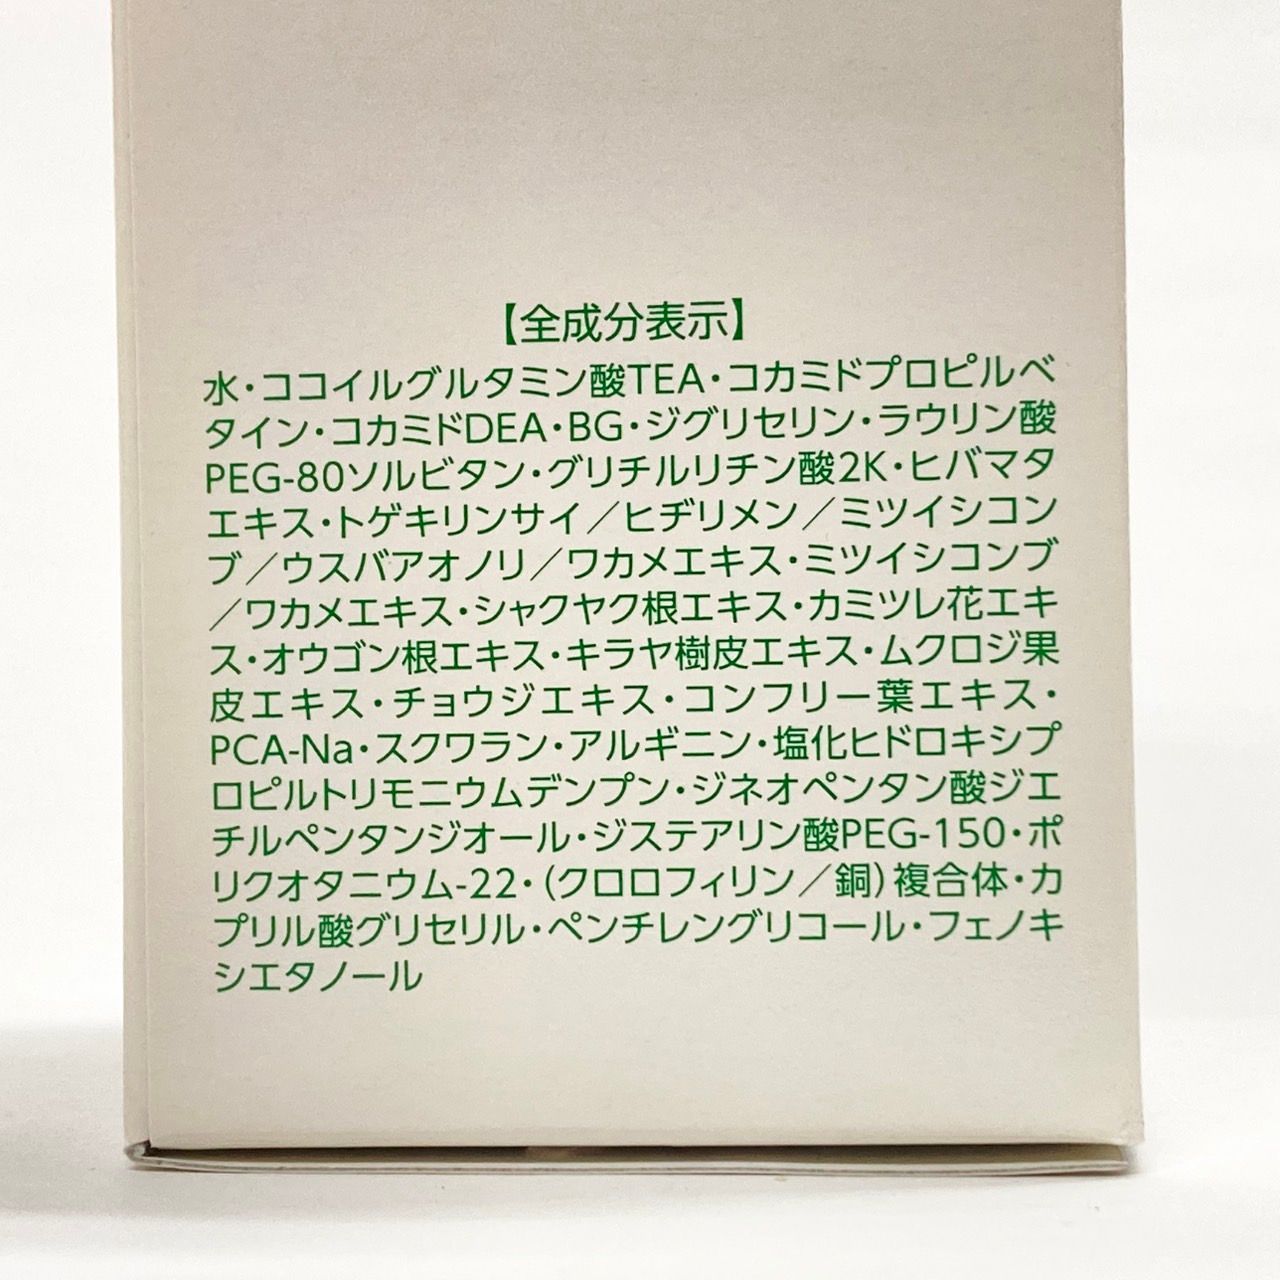 【全成分表示】
水・ココイルグルタミン酸TEA・コカミドプロピルベ
タイン・コカミドDEA・BG・ジグリセリン・ラウリン酸
PEG-80ソルビタン・グリチルリチン酸2K・ヒバマタ
エキス・トゲキリンサイ／ヒヂリメン／ミツイシコン
ブ／ウスバアオノリ／ワカメエキス・ミツイシコンブ
／ワカメエキス・シャクヤク根エキス・カミツレ花エキ
ス・オウゴン根エキス・キラヤ樹皮エキス・ムクロジ果
皮エキス・チョウジエキス・コンフリー葉エキス・
PCA-Na・スクワラン・アルギニン・塩化ヒドロキシプ
ロピルトリモニウムデンプン・ジネオペンタン酸ジエ
チルペンタンジオール・ジステアリン酸PEG-150・ポ
リクオタニウム-22・(クロロフィリン／銅)複合体・カ
プリル酸グリセリル・ペンチレングリコール・フェノキ
シエタノール